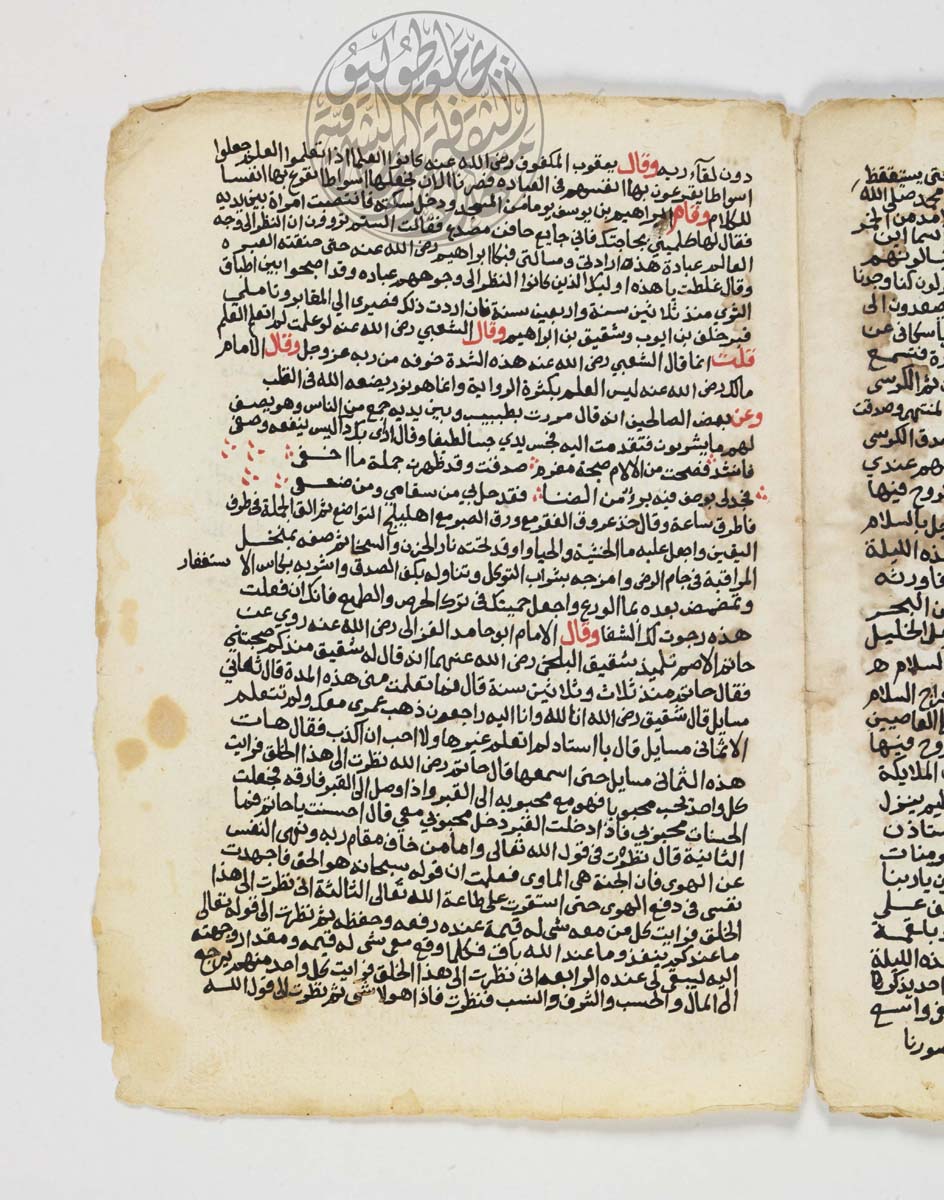 دون لقاء ربه وقال يعقوب المكفوف رضى الله عنه كانوا العلما اذا تعلموا العلم جعلوا
اسواطا يقرعون بها انفسهم فى العباده فصرنا الان نجعلها اسواطا نقرع بها انفسا
للكلام وقام ابراهيم بن يوسف يوما من المسجد ودخل سكته فانتصبت امراة بين يديه
فقال لها طلبتي بحاجتك فاني جايع حاقن مصدع فقالت الستم تروون ان النظر الى وجه
العالم عبادة هذه ارادتي ومسالتي فبكا ابراهيم رضى الله عنه حتى خنقته العبره
وقال غلطت يا هذه اوليك الذين كانوا النظر الى وجوههم عباده وقد اصبحوا بين اطباق
الثرى منذ ثلاثين سنة واربعين سنة فان اردت ذلك فصيرى الى المقابر وتاملى
قبر خلف بن ايوب وشقيق بن ابراهيم وقال الشعبي رضى الله عنه لو علمت لم اتعلم العلم
قلت انما قال الشعبي رضى الله عنه هذه الشدة خوفه من ربه عز وجل وقال الامام
مالك رضى الله عنه ليس العلم بكثرة الرواية وانما هو نور يضعه الله فى القلب
وعن بعض الصالحين انه قال مررت بطبيب وبين يديه جمع من الناس وهو يصف
لهم ما يشربون فتقدمت اليه فجس يدي جسا لطيفا وقال اى بك داليس ينفعه وصفى
فانشد فصحت من الالام صيحة مغرم صدقت وقد ظهرت جملة ما اخفى
فجد لى بوصف فيه بروء من الضنا فقد حل بي من سقامى ومن ضعفى
فاطرق ساعة وقال خذ عروق الفقر مع ورق الصبر مع اهليلج التواضع ثم الق الجملة فى ظرف
اليقين واجعل عليه ما الخشية والحيا واوقد تحته نار الحزن والسحنا ثم صفه بمنخل
المراقبة فى جام الرضى وامزجه بشراب التوكل وتناوله بكف الصدق واشربه بكاس الاستغفار
وتمضمض بعده بما الورع واجعل حميتك فى ترك الحرص والطمع فانك ان فعلت
هذه رجوت لك الشفا وقال الامام ابو حامد الغزالى رضى الله عنه روي عن
حاتم الاصم تلميذ شقيق البلخى رضى الله عنهما انه قال له شقيق منذ كم صحبتني
فقال حاتم منذ ثلاث وثلاثين سنة قال فما تعلمت منى هذه المدة قال ثمانى
مسايل قال شقيق رضى الله انا لله وانا اليه راجعون ذهب عمرى معك ولم تتعلم
الا ثمانى مسايل قال يا استاد لم اتعلم غيرها ولا احب ان اكذب فقال هات
هذه الثمانى مسايل حتى اسمعها قال حاتم رضى الله نظرت الى هذا الخلق فرايت
كل واحد يحب محبوبا فهو مع محبوبه الى القبر واذا وصل الى القبر فارقه فجعلت
الحسنات محبوبي فاذا دخلت القبر دخل محبوبي معى قال احسنت يا حاتم فما
الثانية قال نظرت فى قول الله تعالى واما من خاف مقام ربه ونهى النفس
عن الهوى فان الجنة هى الماوى فعلمت ان قوله سبحانه هو الحق فاجهدت
نفسى فى دفع الهوى حتى استقرت على طاعة الله تعالى الثالثة انى نظرت الى هذا
الخلق فرايت كل من معه شى له قيمة عنده رفعه وحفظه ثم نظرت الى قوله تعالى
ما عندكم ينفد وما عند الله باق فكلما وقع معى شى له قيمه ومقدار وجهته
اليه ليبقى لى عنده الرابعه انى نظرت الى هذا الخلق فرايت كل واحد منهم يرجع
الى المال والحسب والشرف والنسب فنظرت فاذا هو لا شى ثم نظرت الى قول الله
حتى يستيقظ
محمد صلى الله
ولون كنا وجدنا
يصعدون الى
ثم الكرسى
المنتهى وصدقت
صدق الكرسى
هم عندي
روح فيها
بالسلام
هذه الليلة
البحر
الخليل
السلام
السلام
العاصين
فيها
الملايكة
ينزل
يا ربنا
على
هذه الليلة
واسع